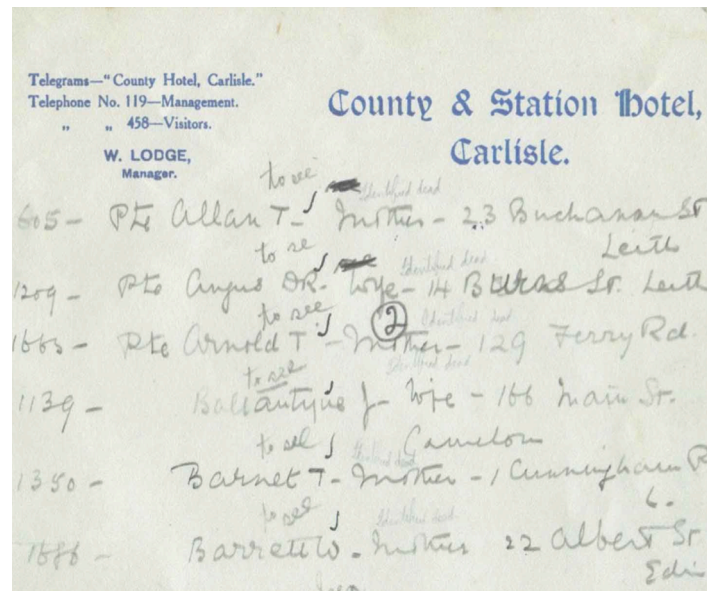 Telegrams—"County Hotel, Carlisle."
Telephone No. 119—Management.
„ „ 458—Visitors.
W. LODGE,
Manager.
County & Station Hotel,
Carlisle.
to see
Identified dead
605 - Pte Allan T - Mother - 23 Buchanan St
Leith
to se
Identified dead
1209 - Pte Angus DR - Wife - 14 Burns St. Leith
to see
2
Identified dead
1663 - Pte Arnold T - Mother - 129 Ferry Rd.
to see
Identified dead
1139 - Ballantyne J - Wife - 166 Main St.
Camelon
to see
Identified dead
1350 - Barnet T - Mother - 1 Cunningham
6.
to see
Identified dead
1686 - Barrett W - Mother 22 Albert St
Edin